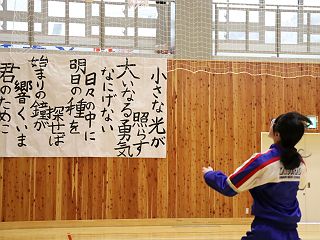 小さな光が
照らす
大いなる勇気
なにげない
日々の中に
明日の種を
探せば
始まりの鐘が
響くいま
君のために